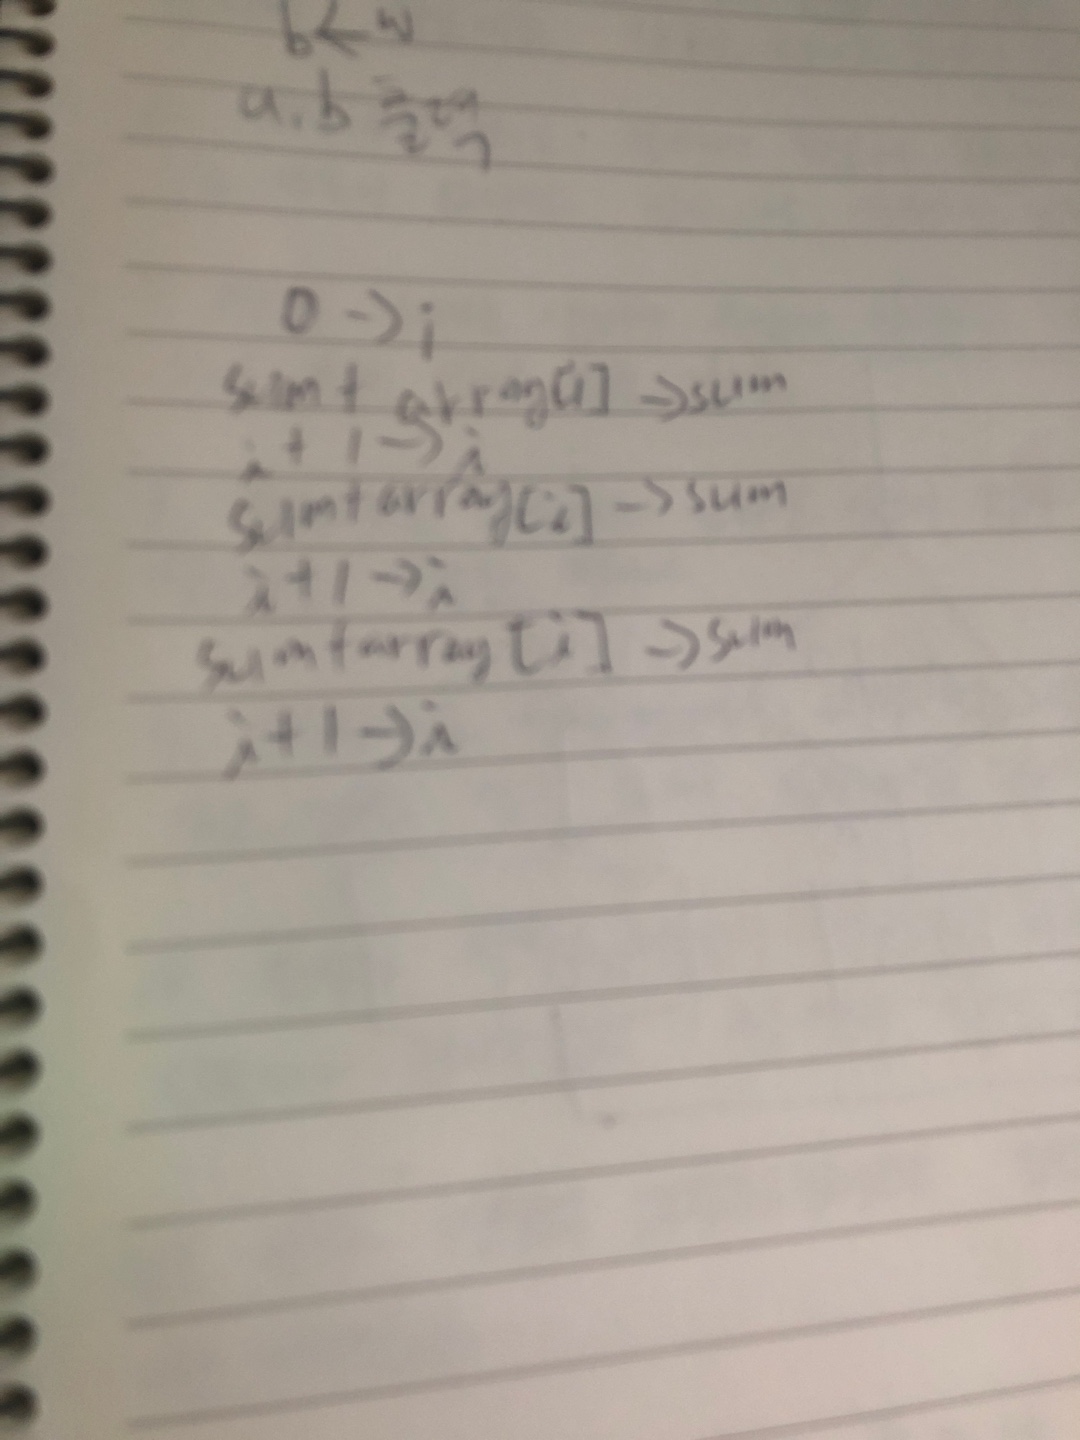 b←w
a.b 출력
0→i
sum+array[i]→sum
i+1→i
sum+array[i]→sum
i+1→i
sum+array[i]→sum
i+1→i